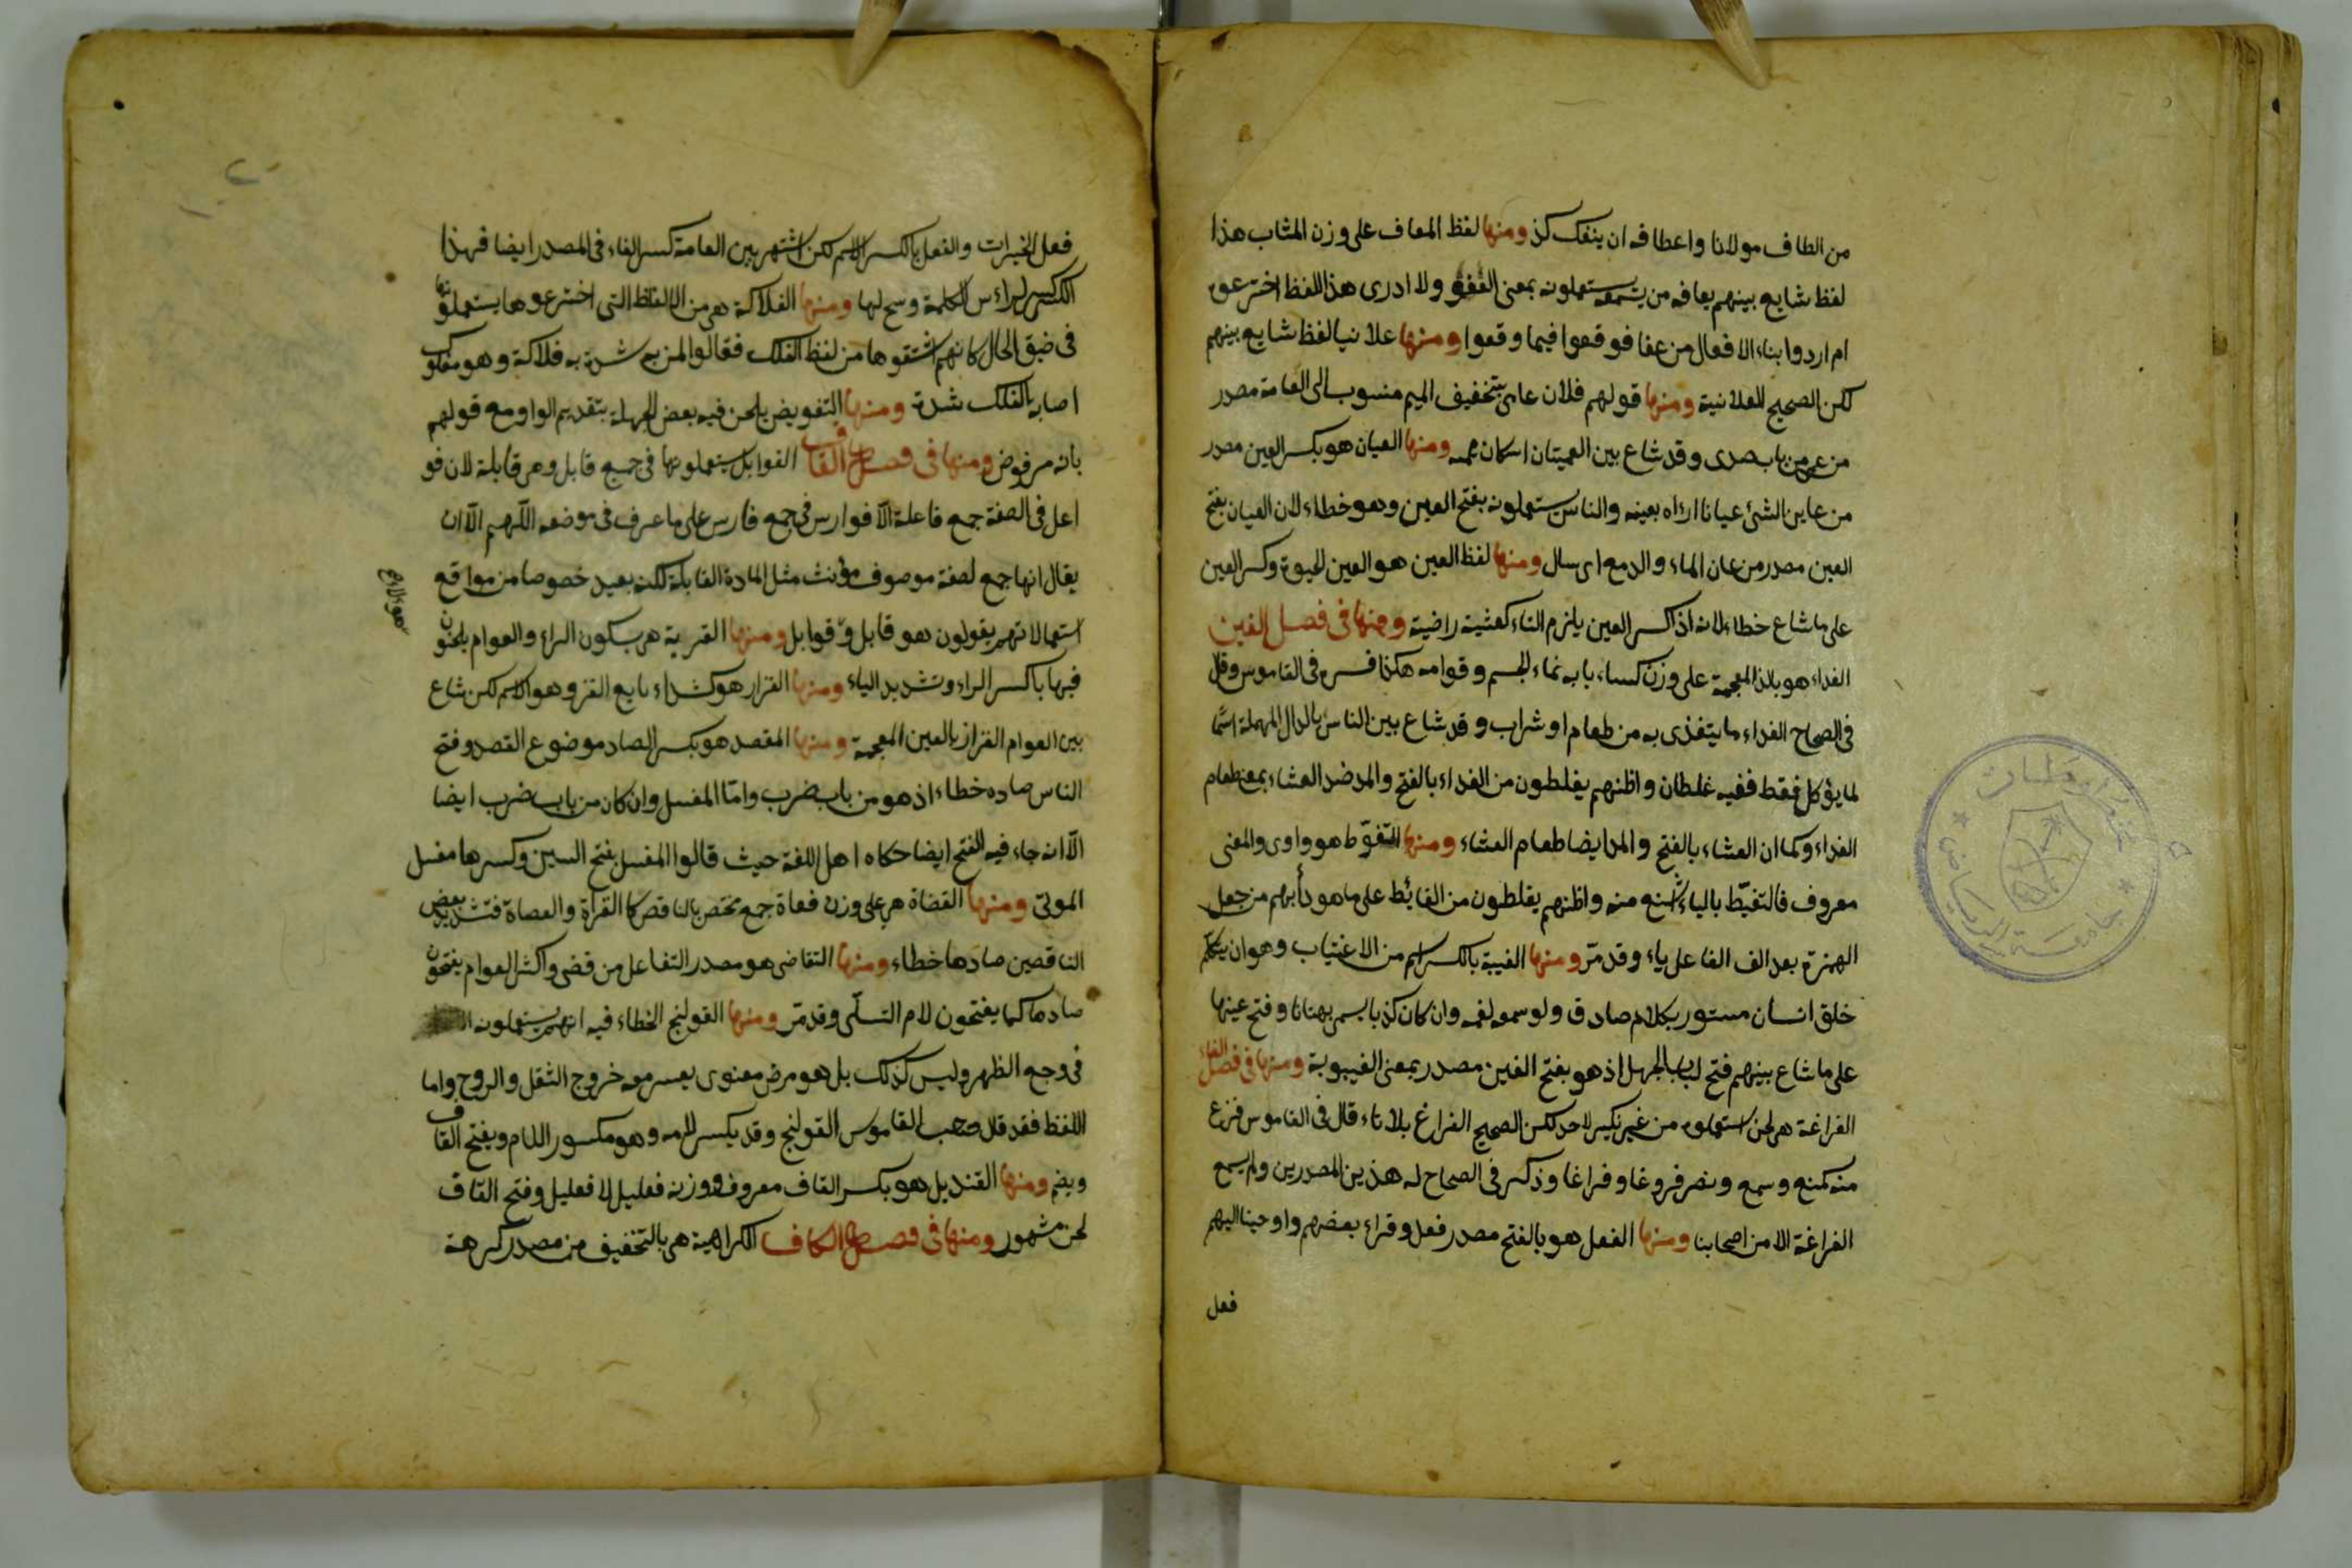 من الطاف مولانا واعطافه ان ينفك كذ ومنها لفظ المعاف على وزن المثاب هذا
لفظ شايع بينهم يعافه من يسمعه يستعملونه بمعنى المعفو ولا ادرى هذا اللفظ اخترعوه
ام ارادوا بناء الافعال من عفا فوقعوا فيما وقعوا ومنها علانيا لفظ شايع بينهم
لكن الصحيح العلانية ومنها قولهم فلان عامى بتخفيف الميم منسوب الى العامة مصدر
من عمى من باب صدى وقد شاع بين العميتان اسكان ميمه ومنها العيان هو بكسر العين مصدر
من عاين الشئ عيانا اراه بعينه والناس يستعملونه بفتح العين وهو خطاء لان العيان بفتح
العين مصدر من عان الماء والدمع اى سال ومنها لفظ العين هو العين لحيوة وكسر العين
على ما شاع خطاء لانه اذ كسر العين يلزم التاء كعيشة راضية ومنها فى فصل الغين
الغذاء هو بالذا المعجمة على وزن كساء ما به نماء الجسم وقوامه هكذا فسره فى القاموس وقال
فى الصحاح الغذاء ما يتغذى به من طعام او شراب وقد شاع بين الناس بالدال المهملة اسما
لما يؤكل فقط ففيه غلطان واظنهم يغلطون من الغداء بالفتح والمد ضد العشاء بمعنى طعام
الغداء وكما ان العشاء بالفتح والمد ايضا طعام العشاء ومنها التغوّط هو واوى والمعنى
معروف فالتغيّط بالياء اشنع منه واظنهم يغلطون من الغائط على ما هو دأبهم من جعل
الهمزة بعد الف الفاعل ياء وقد مرّ ومنها الغيبة بالكسر اسم من الاغتياب وهو ان يتكلم
خلق انسان مستور بكلام صادق ولو سمعه لغمه وان كان كذبا يسمى بهتانا وفتح عينها
على ما شاع بينهم فتح لباب الجهل اذ هو بفتح الغين مصدر بمعنى الغيبوبة ومنها فى فصل الفاء
الفراغة هى لحن استعملوه من غير نكير لاحد لكن الصحيح الفراغ بلا تاء قال فى القاموس فزع
منه كمنع وسمع ونصر فروغا وفراغا وذكر فى الصحاح له هذين المصدرين ولم يسمع
الفراغة الا من اصحابنا ومنها الفعل هو بالفتح مصدر فعل وقراء بعضهم واوحينا اليهم
فعل
فعل الخيرات والفعل بالكسر الاسم لكن اشتهر بين العامة كسر الفاء فى المصدر ايضا فهذا
الكسر لراءس الكلمة وسح لها ومنها الفلاكة هى من الالفاظ التى اخترعوها يستعملونها
فى ضيق الحال كانهم اشتقوها من لفظ الفلك فقالوا لمن به شدة به فلاكة وهو مفلوك
اصابه الفلك شدة ومنها التفويض يلحن فيه بعض الجهلة بتقديم الواو مع قولهم
بانه مرفوض ومنها فى فصل القاف القوابل يستعملونها فى جمع قابل وهى قابلة لان فو
اعل فى الصفة جمع فاعلة الّا فوارس فى جمع فارس على ما عرف فى موضعه اللّهم الّا ان
يقال انها جمع لصفة موصوف مؤنث مثل المادة القابلة لكنه بعيد خصوصا من مواقع
استعمالاتهم يقولون هو قابل وقوابل ومنها القرية هى بسكون الراء والعوام يلحنون
فيها باكسر الراء وتشديد الياء ومنها القزاز هو كشداد بايع القز وهو الاسم لكن شاع
بين العوام الغزاز بالغين المعجمة ومنها المقصد هو بكسر الصاد موضوع القصد وفتح
الناس صاده خطاء اذ هو من باب ضرب وامّا المغسل وان كان من باب ضرب ايضا
الّا انه جاء فيه الفتح ايضا حكاه اهل اللغة حيث قالوا المغسل بفتح السين وكسرها مغسل
الموتى ومنها القضاة هى على وزن فعاة جمع مختص بالناقص كالقراة والعصاة فتشديد بعض
الناقصين صادها خطاء ومنها التقاضى هو مصدر التفاعل من قضى واكثر العوام يفتحون
صادها كما يفتحون لام التسلّى وقد مرّ ومنها القولنج الخطاء فيه انهم يستعملونه
فى وجع الظهر وليس كذلك بل هو مرض معوى يعسر معه خروج الثفل والريح واما
اللفظ فقد قال صاحب القاموس القولنج وقد يكسر لامه وهو مكسور اللام ويفتح القاف
ويضم ومنها القنديل هو بكسر القاف معروف ووزنه فعليل لا فعليل وفتح القاف
لحن مشهور ومنها فى فصل الكاف الكراهية هى بالتخفيف من مصدر كرهه